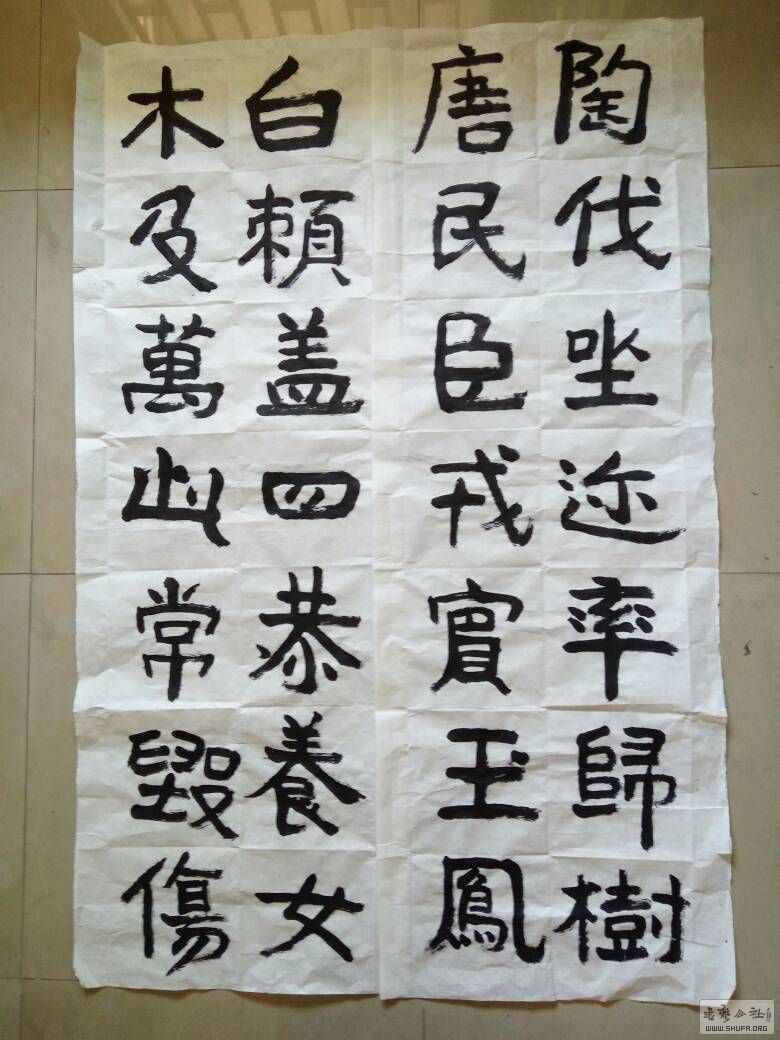 陶伐坐迩率歸樹
唐民臣戎賓王鳳
白賴盖四恭養女
木及萬此常毀傷
書藝公社
WWW.SHUFA.ORG